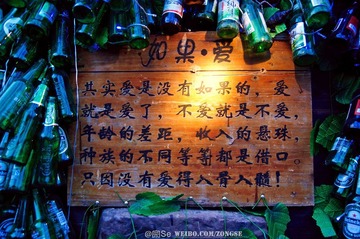 如果·爱
其实爱是没有如果的，爱
就是爱了，不爱就是不爱，
年龄的差距，收入的悬珠，
种族的不同等等都是借口
只因没有爱得入骨入髓！
@圆Se WEIBO.COM/ZONGSE